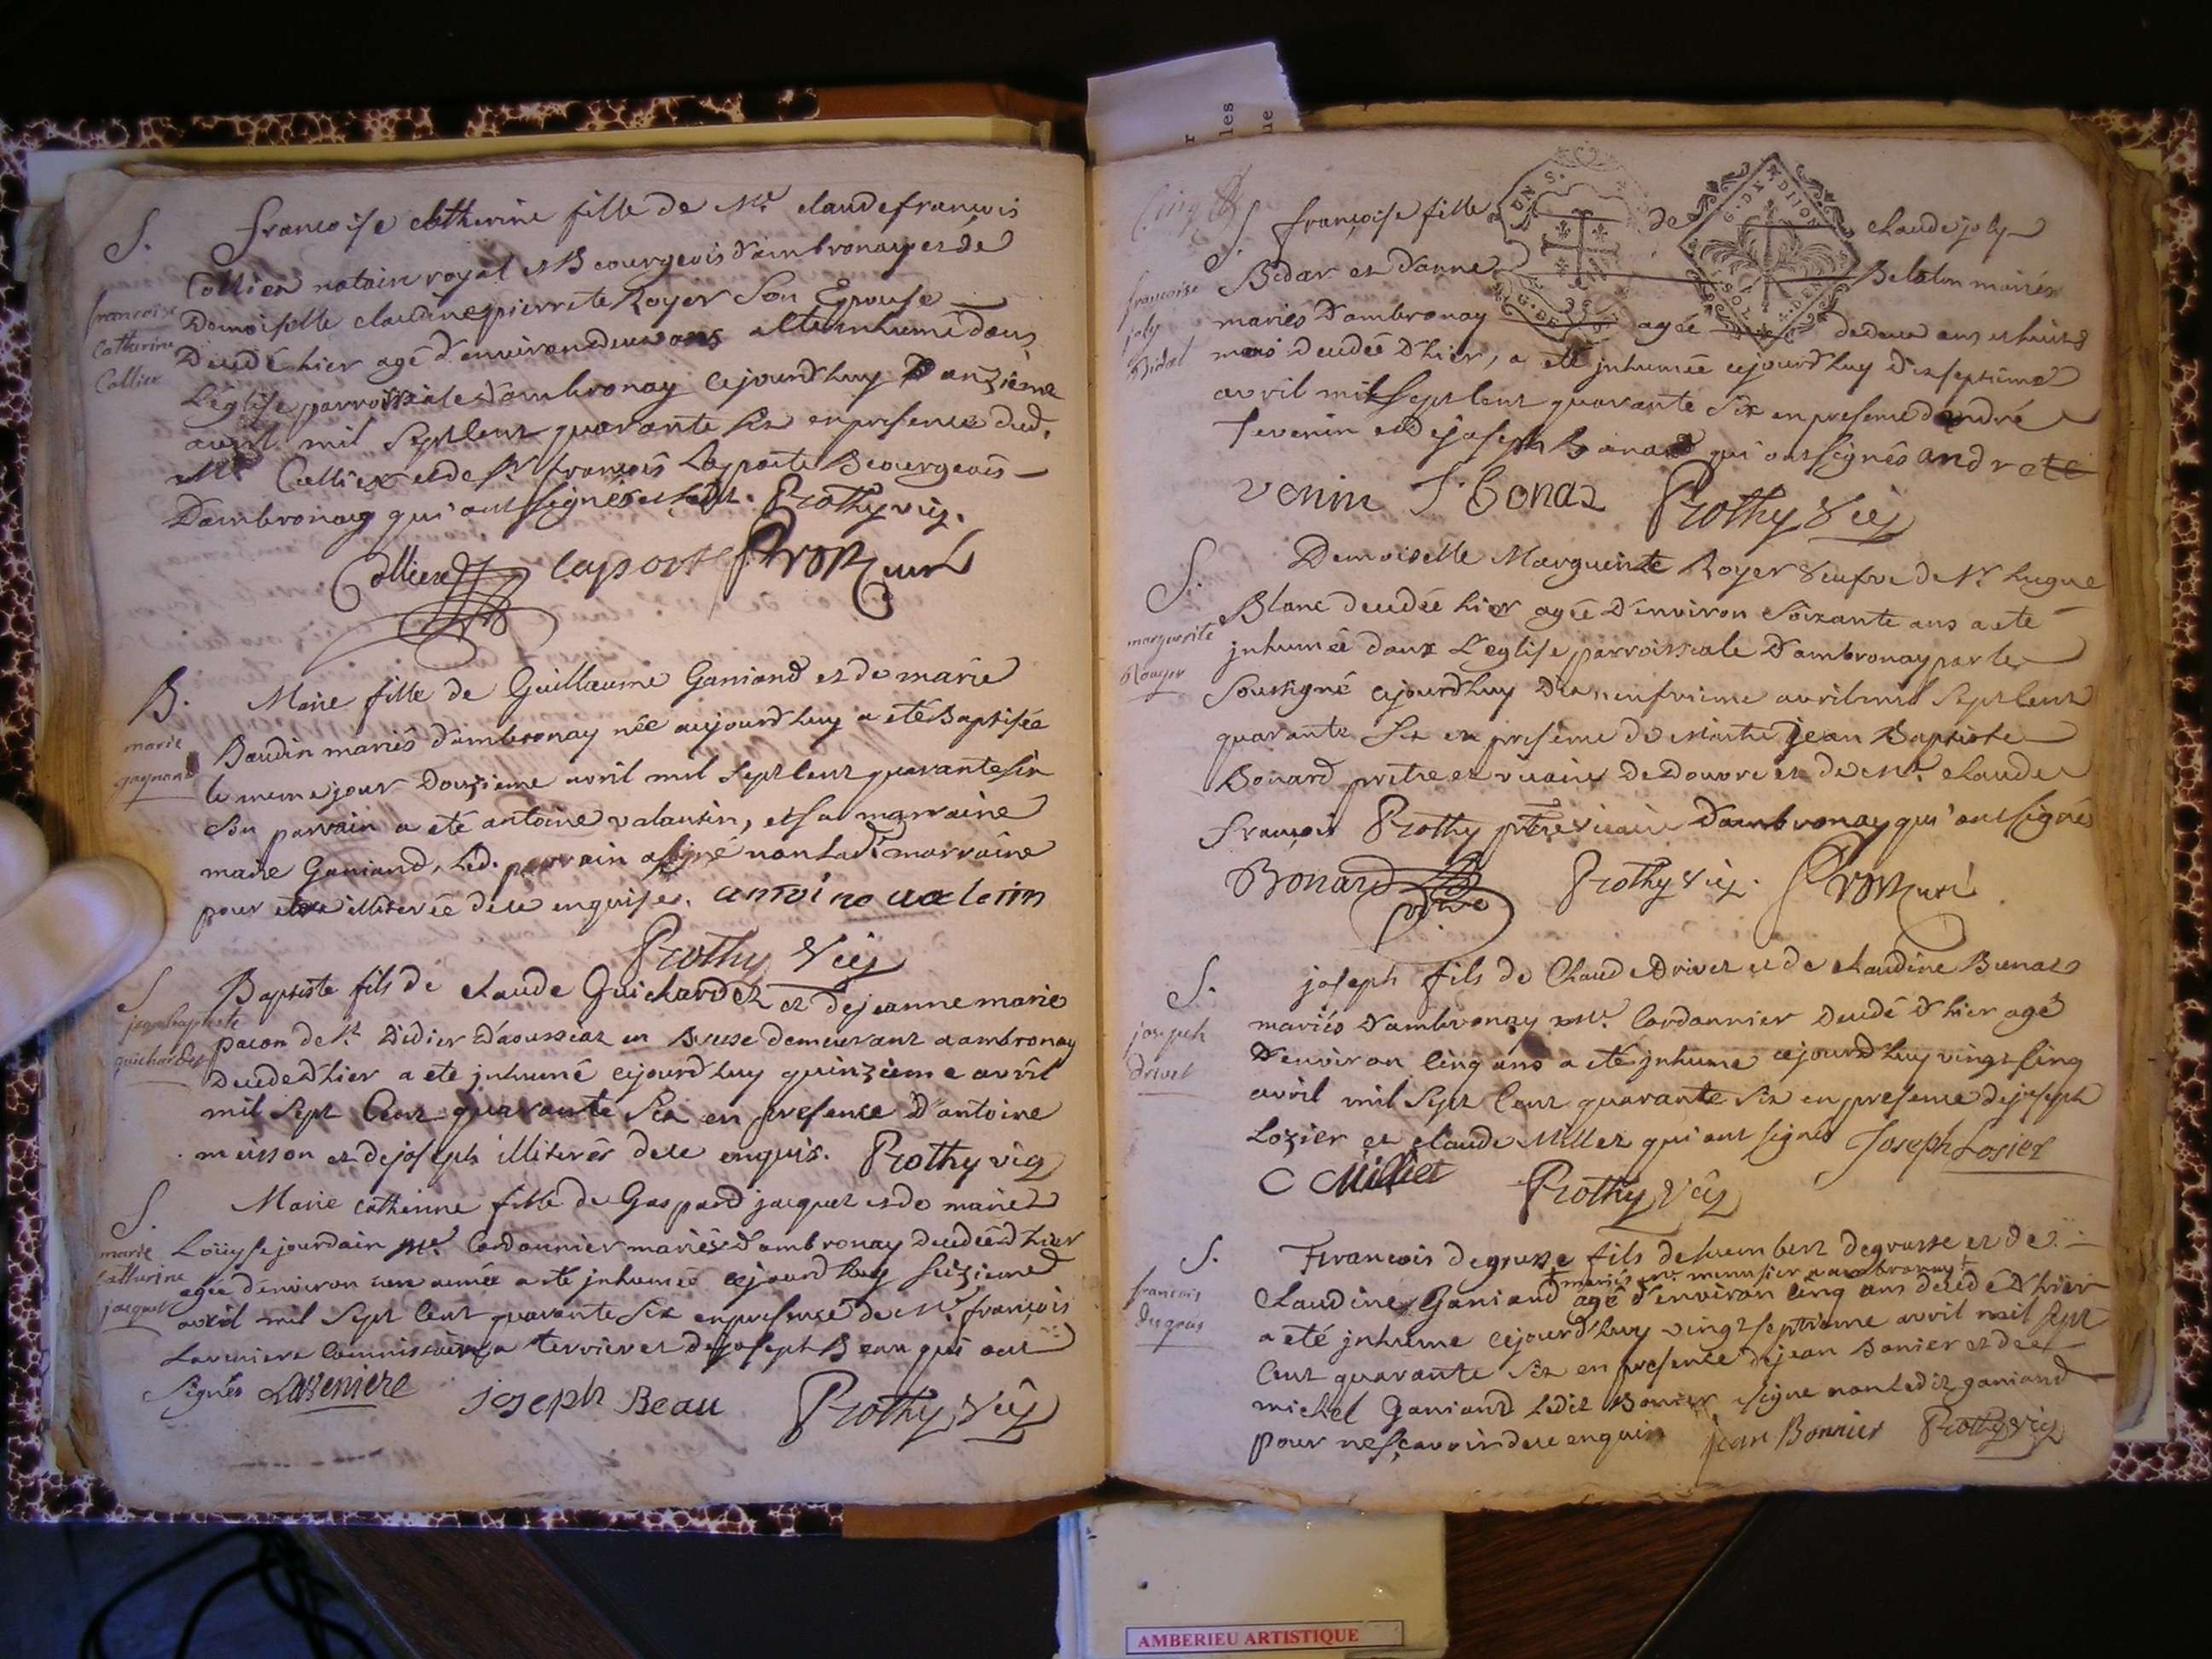 S. françoise catherine fille de Mr. claude françois
Collier notaire royal et Bourgeois d'ambronay et de
Demoiselle claudine pierrette Royer Son Epouse
françoise
Catherine
Collier
Decedé hier agé d'environ deux ans a été inhumé dans
L'église parroissiale d'ambronay cejourd'huy onzième
avril mil Sept Cent quarante Six en presence dud.
Mr Collier et de Sr. françois Laporte Bourgeois
D'ambronay qui ont signés Prothy vic.
Collier laporte cure
B. Marie fille de Guillaume Ganiand et de marie
marie
gagnand
Baudin mariés d'ambronay née aujourd'huy a été Baptisée
le meme jour Douzieme avril mil Sept Cent quarante six
Son parrain a été antoine valantin, et sa marraine
marie Ganiand, led. parrain a signé non lad. marraine
pour etre illiterée de ce enquise. antoine valentin
Prothy Vic
S. Baptiste fils de claude Guichardet et de jeanne marie
jean baptiste
guichardet
pacon de St. Didier d'aoussiat en Bresse demeurant a ambronay
Decedé d'hier a eté inhumé cejourd'huy quinzieme avril
mil Sept Cent quarante Six en presence D'antoine
meisson et de joseph illiterés de ce enquis. Prothy vic
S. Marie catherine fille de Gaspard jacquet et de marie
marie
Catherine
jacquet
Loüyse jourdain Me. Cordonnier mariés d'ambronay decedée d'hier
agée d'environ une année a eté inhumée cejourd'huy seizieme
avril mil Sept Cent quarante Six en presence de Mr. françois
Laveniere Commissaire a terrier et de joseph Beau qui ont
Signés Laveniere joseph Beau Prothy Vic
les
ue
G. DE DIJON
SOL
DEN
S. françoise fille de claude joly
françoise
joly
Bidal
Bidar et d'anne Belaton mariés
mariés d'ambronay agée de deux ans et huit
mois decedée d'hier, a eté inhumée cejourd'huy dixseptieme
avril mil Sept Cent quarante Six en presence d'andré
Tevenin et de joseph Bonard qui ont signés andre te
venin J. bonaz Prothy Vic
S. Demoiselle Marguerite Royer Veufve de Sr. hugue
marguerite
Royer
Blanc decedée hier agée d'environ Soixante ans a eté
inhumée dans L'eglise parroissiale D'ambronay par le
Soussigné cejourd'huy Dixneufvieme avril mil Sept Cent
quarante Six en presence de Jean Baptiste
Bonard prêtre et vicaire de Douvre et de Mr. claude
françois Prothy ptre vicaire D'ambronay qui ont signés
Bonard Prothy Vic. curé
S. joseph fils de Claude Drivet et de claudine Bunaz
joseph
drivet
mariés d'ambronay Me. Cordonnier decedé d'hier agé
D'environ Cinq ans a eté inhume cejourd'huy vingt Cinq
avril mil Sept Cent quarante Six en presence de joseph
Lozier et claude Millet qui ont signés Joseph Losier
C Milliet Prothy Vic
S. Francois degrusse fils de humbert degrusse et de
mariés Me. menusier a ambronay
françois
degrus
claudine Ganiand agé d'environ Cinq ans decedé d'hier
a eté inhume cejourd'huy vingt septieme avril mil Sept
Cent quarante Six en presence de jean Bonier et de
michel Ganiand Ledit Bonier a signe non Ledit ganiand
pour ne sçavoir de ce enquis jean Bonnier Prothy Vic
AMBERIEU ARTISTIQUE